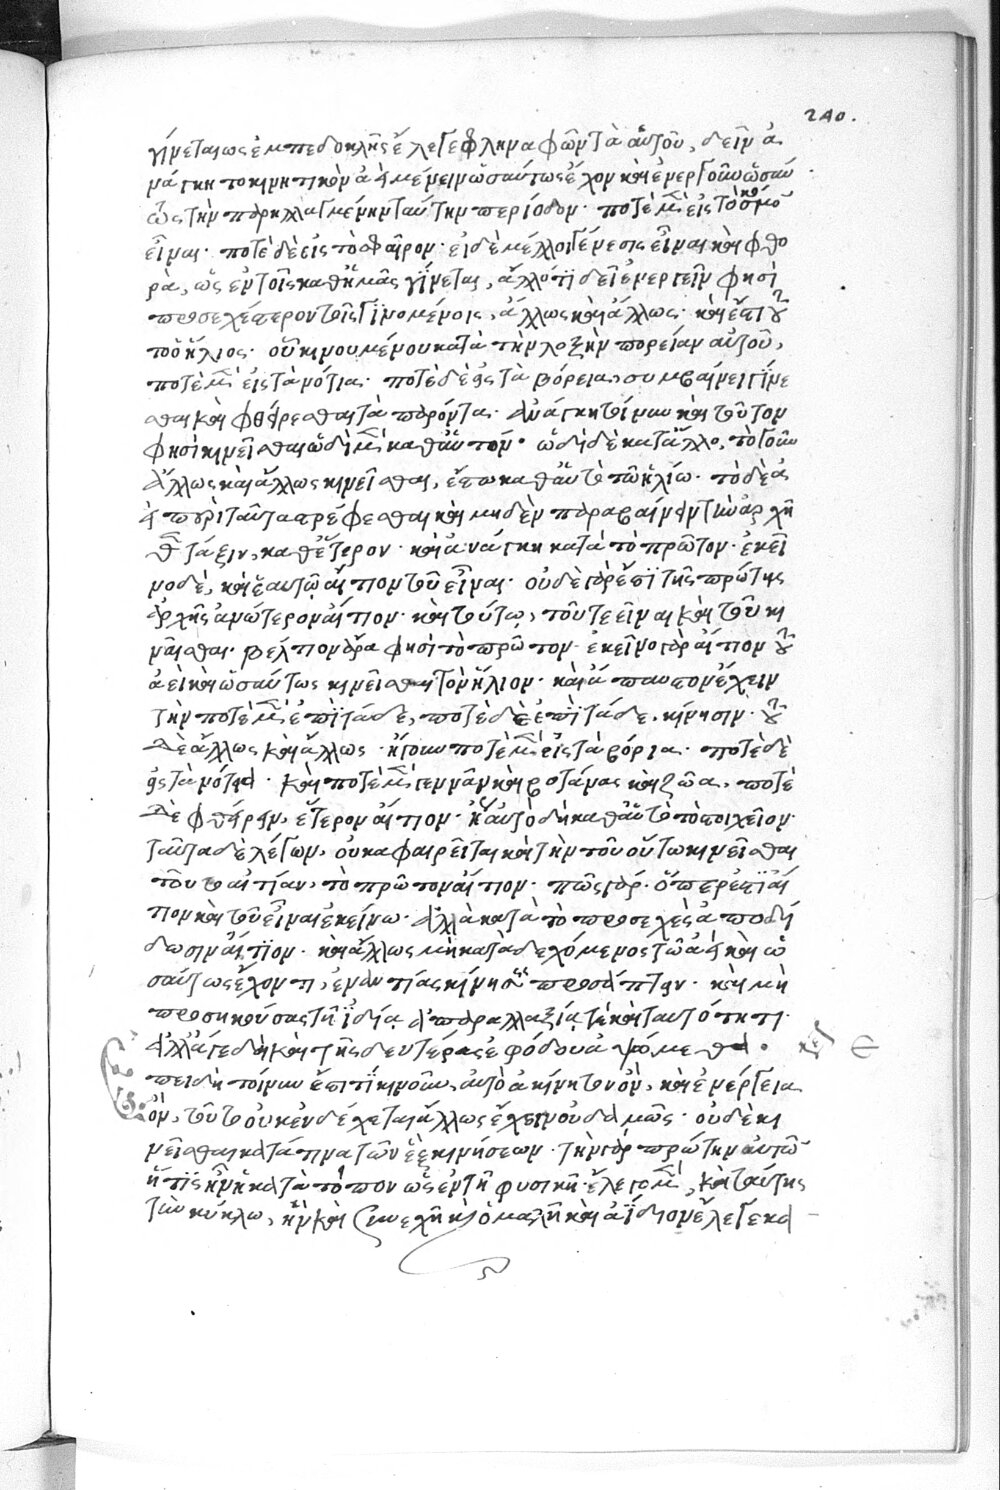 240.
γίνεται ως ἐμπεδοκλῆς ἔλεγε φλημαφῶν τὰ αὐτοῦ, δεῖν ἀ
νάγκη τὸ κινητικὸν ἀεὶ μένειν ὡσαύτως ἔχον καὶ ἐνεργοῦν ὡσαύ
τως τὴν παρηλλαγμένην ταύτην περίοδον· ποτὲ μὲν εἰς τὸ κόσμον
εἶναι· ποτὲ δὲ εἰς τὸ σφαῖρον· εἰ δὲ μέλλοι γένεσις εἶναι καὶ φθο
ρὰ, ὡς ἐν τοῖς καθ' ἡμᾶς γίνεται, ἄλλό τι δεῖ ἐνεργεῖν φησὶ
προσεχέστερον τοῖς γινομένοις, ἄλλως καὶ ἄλλως· καὶ ἔστι τοῦ
το ὁ ἥλιος· οὗ κινουμένου κατὰ τὴν λοξὴν πορείαν αὐτοῦ,
ποτὲ μὲν εἰς τὰ νότια· ποτὲ δὲ εἰς τὰ βόρεια, συμβαίνει γίνε
σθαι καὶ φθείρεσθαι τὰ παρόντα· ἀνάγκη τοίνυν καὶ τοῦτον
φησὶ κινεῖσθαι ὡδὶ μὲν καθ' αὑτόν· ὡδὶ δὲ κατ' ἄλλο, τὸ γοῦν
ἄλλως καὶ ἄλλως κινεῖσθαι, ἔστω καθ' αὑτὸ τῶ ἡλίω· τὸ δὲ ἀ
εὶ περὶ ταῦτα στρέφεσθαι καὶ μηδὲν παραβαίνειν τὴν ἀρχῆ
θεν τάξιν, καθ' ἕτερον· καὶ ἀνάγκη κατὰ τὸ πρῶτον· ἐκεῖ
νο δὲ, καὶ ἑαυτῶ αἴτιον τοῦ εἶναι· οὐδὲ γὰρ ἔστι τῆς πρώτης
ἀρχῆς ἀνώτερον αἴτιον· καὶ τούτω, τοῦ τε εἶναι καὶ τοῦ κι
νεῖσθαι· βέλτιον ἄρα φησὶ τὸ πρῶτον· ἐκεῖνο γὰρ αἴτιον τοῦ
ἀεὶ καὶ ὡσαύτως κινεῖσθαι τὸν ἥλιον· καὶ ἄπαυστον ἔχειν
τὴν ποτὲ μὲν ἐπὶ τάδε, ποτὲ δὲ ἐπὶ τάδε, κίνησιν· τοῦ
δὲ ἄλλως καὶ ἄλλως· ἤγουν ποτὲ μὲν εἰς τὰ βόρια· ποτὲ δὲ
εἰς τὰ νότια· καὶ ποτὲ μὲν γεννᾶν καὶ βοτάνας καὶ ζῶα, ποτὲ
δὲ φθείρειν, ἕτερον αἴτιον· ἢ αὐτὸ δὴ καθ' αὑτὸ τὸ στοιχεῖον·
ταῦτα δὲ λέγων, οὐκ ἀφαιρεῖται καὶ τὴν τοῦ οὕτω κινεῖσθαι
τοῦτο αἰτίαν, τὸ πρῶτον αἴτιον· πῶς γάρ· ὅπερ ἐστὶ αἴ
τιον καὶ τοῦ εἶναι ἐκείνω· ἀλλὰ κατὰ τὸ προσεχὲς ἀποδί
δωσιν αἴτιον· καὶ ἄλλως μὴ καταδεχόμενος τῶ ἀεὶ καὶ ὡ
σαύτως ἔχοντι, ἐναντίας κινήσεις προσάπτειν· καὶ μὴ
προσηκούσας τῆ ἰδία ἀπαραλλαξία τὲ καὶ ταυτότητι·
ἀλλά γε δὴ καὶ τῆς δευτέρας ἐφόδου ἁψόμεθα·
ἐπειδὴ τοίνυν ἔστι τὶ κινοῦν, αὐτὸ ἀκίνητον ὂν, καὶ ἐνέργεια
ὂν, τοῦτο οὐκ ἐνδέχεται ἄλλως ἔχειν οὐδαμῶς· οὐδὲ κι
νεῖσθαι κατά τινα τῶν ἓξ κινήσεων· τὴν γὰρ πρώτην αὐτῶν
ἥτις ἦν ἡ κατὰ τόπον ὡς ἐν τῆ φυσικῆ ἔλεγομεν, καὶ ταύτης
τὴν κύκλω, ἣν καὶ συνεχῆ καὶ ὁμαλῆ καὶ ἀΐδιον ἔλεγε κα